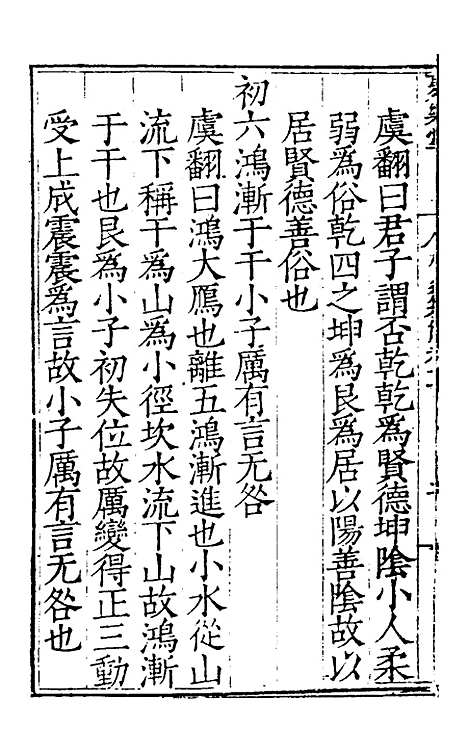 虞翻曰君子謂否乾乾爲賢德坤陰小人柔
弱爲俗乾四之坤爲艮爲居以陽善陰故以
居賢德善俗也
初六鴻漸于干小子厲有言无咎
虞翻曰鴻大鴈也離五鴻漸進也小水從山
流下稱干艮爲山爲小徑坎水流下山故鴻漸
于干也艮爲小子初失位故厲變得正三動
受上成震震爲言故小子厲有言无咎也